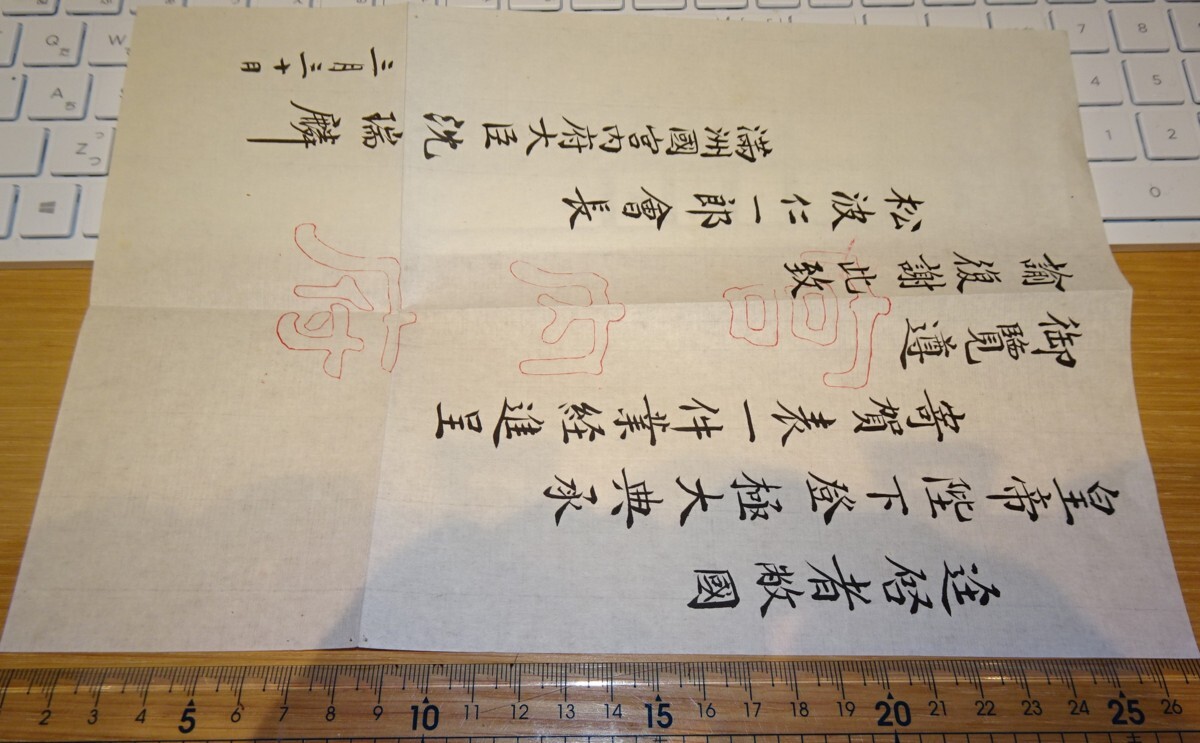 逕啓者敝國
皇帝陛下登極大典承
寄賀表一件業経進呈
御覽遵
諭復謝此致
松波仁一郎會長
滿洲國宮內府大臣沈瑞麟
三月三十日
宮內府
Q W
7 8
A
4 5
Z
1 2
0
2 3 4 5 6 7 8 9 10 11 12 13 14 15 16 17 18 19 20 21 22 23 24 25 26